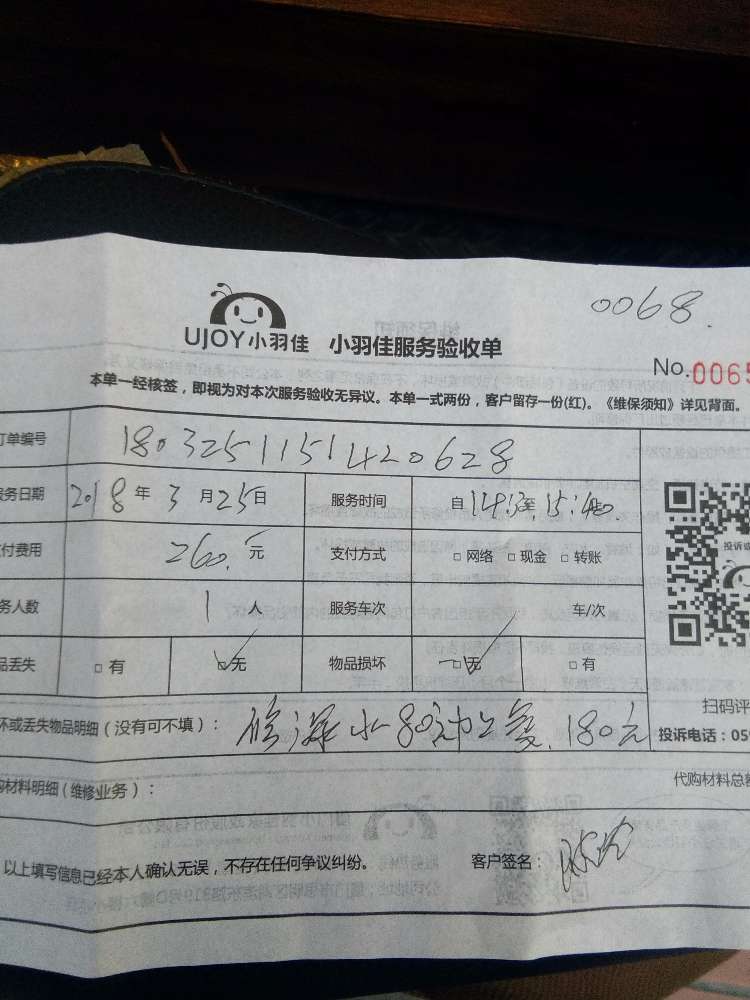 0068.
UJOY小羽佳 小羽佳服务验收单
No.0065
本单一经核签，即视为对本次服务验收无异议。本单一式两份，客户留存一份(红)。《维保须知》详见背面。
订单编号 1803251151420628
服务日期 2018年3月25日 服务时间 自14:3至15:40
支付费用 260.元 支付方式 □网络 □现金 □转账
务人数 1人 服务车次 车/次
品丢失 □有 □无 物品损坏 □无 □有
坏或丢失物品明细（没有可不填）： 修漏水80元 180元
扫码评
投诉电话：059
购材料明细（维修业务）： 代购材料总额
以上填写信息已经本人确认无误，不存在任何争议纠纷。 客户签名：
投诉